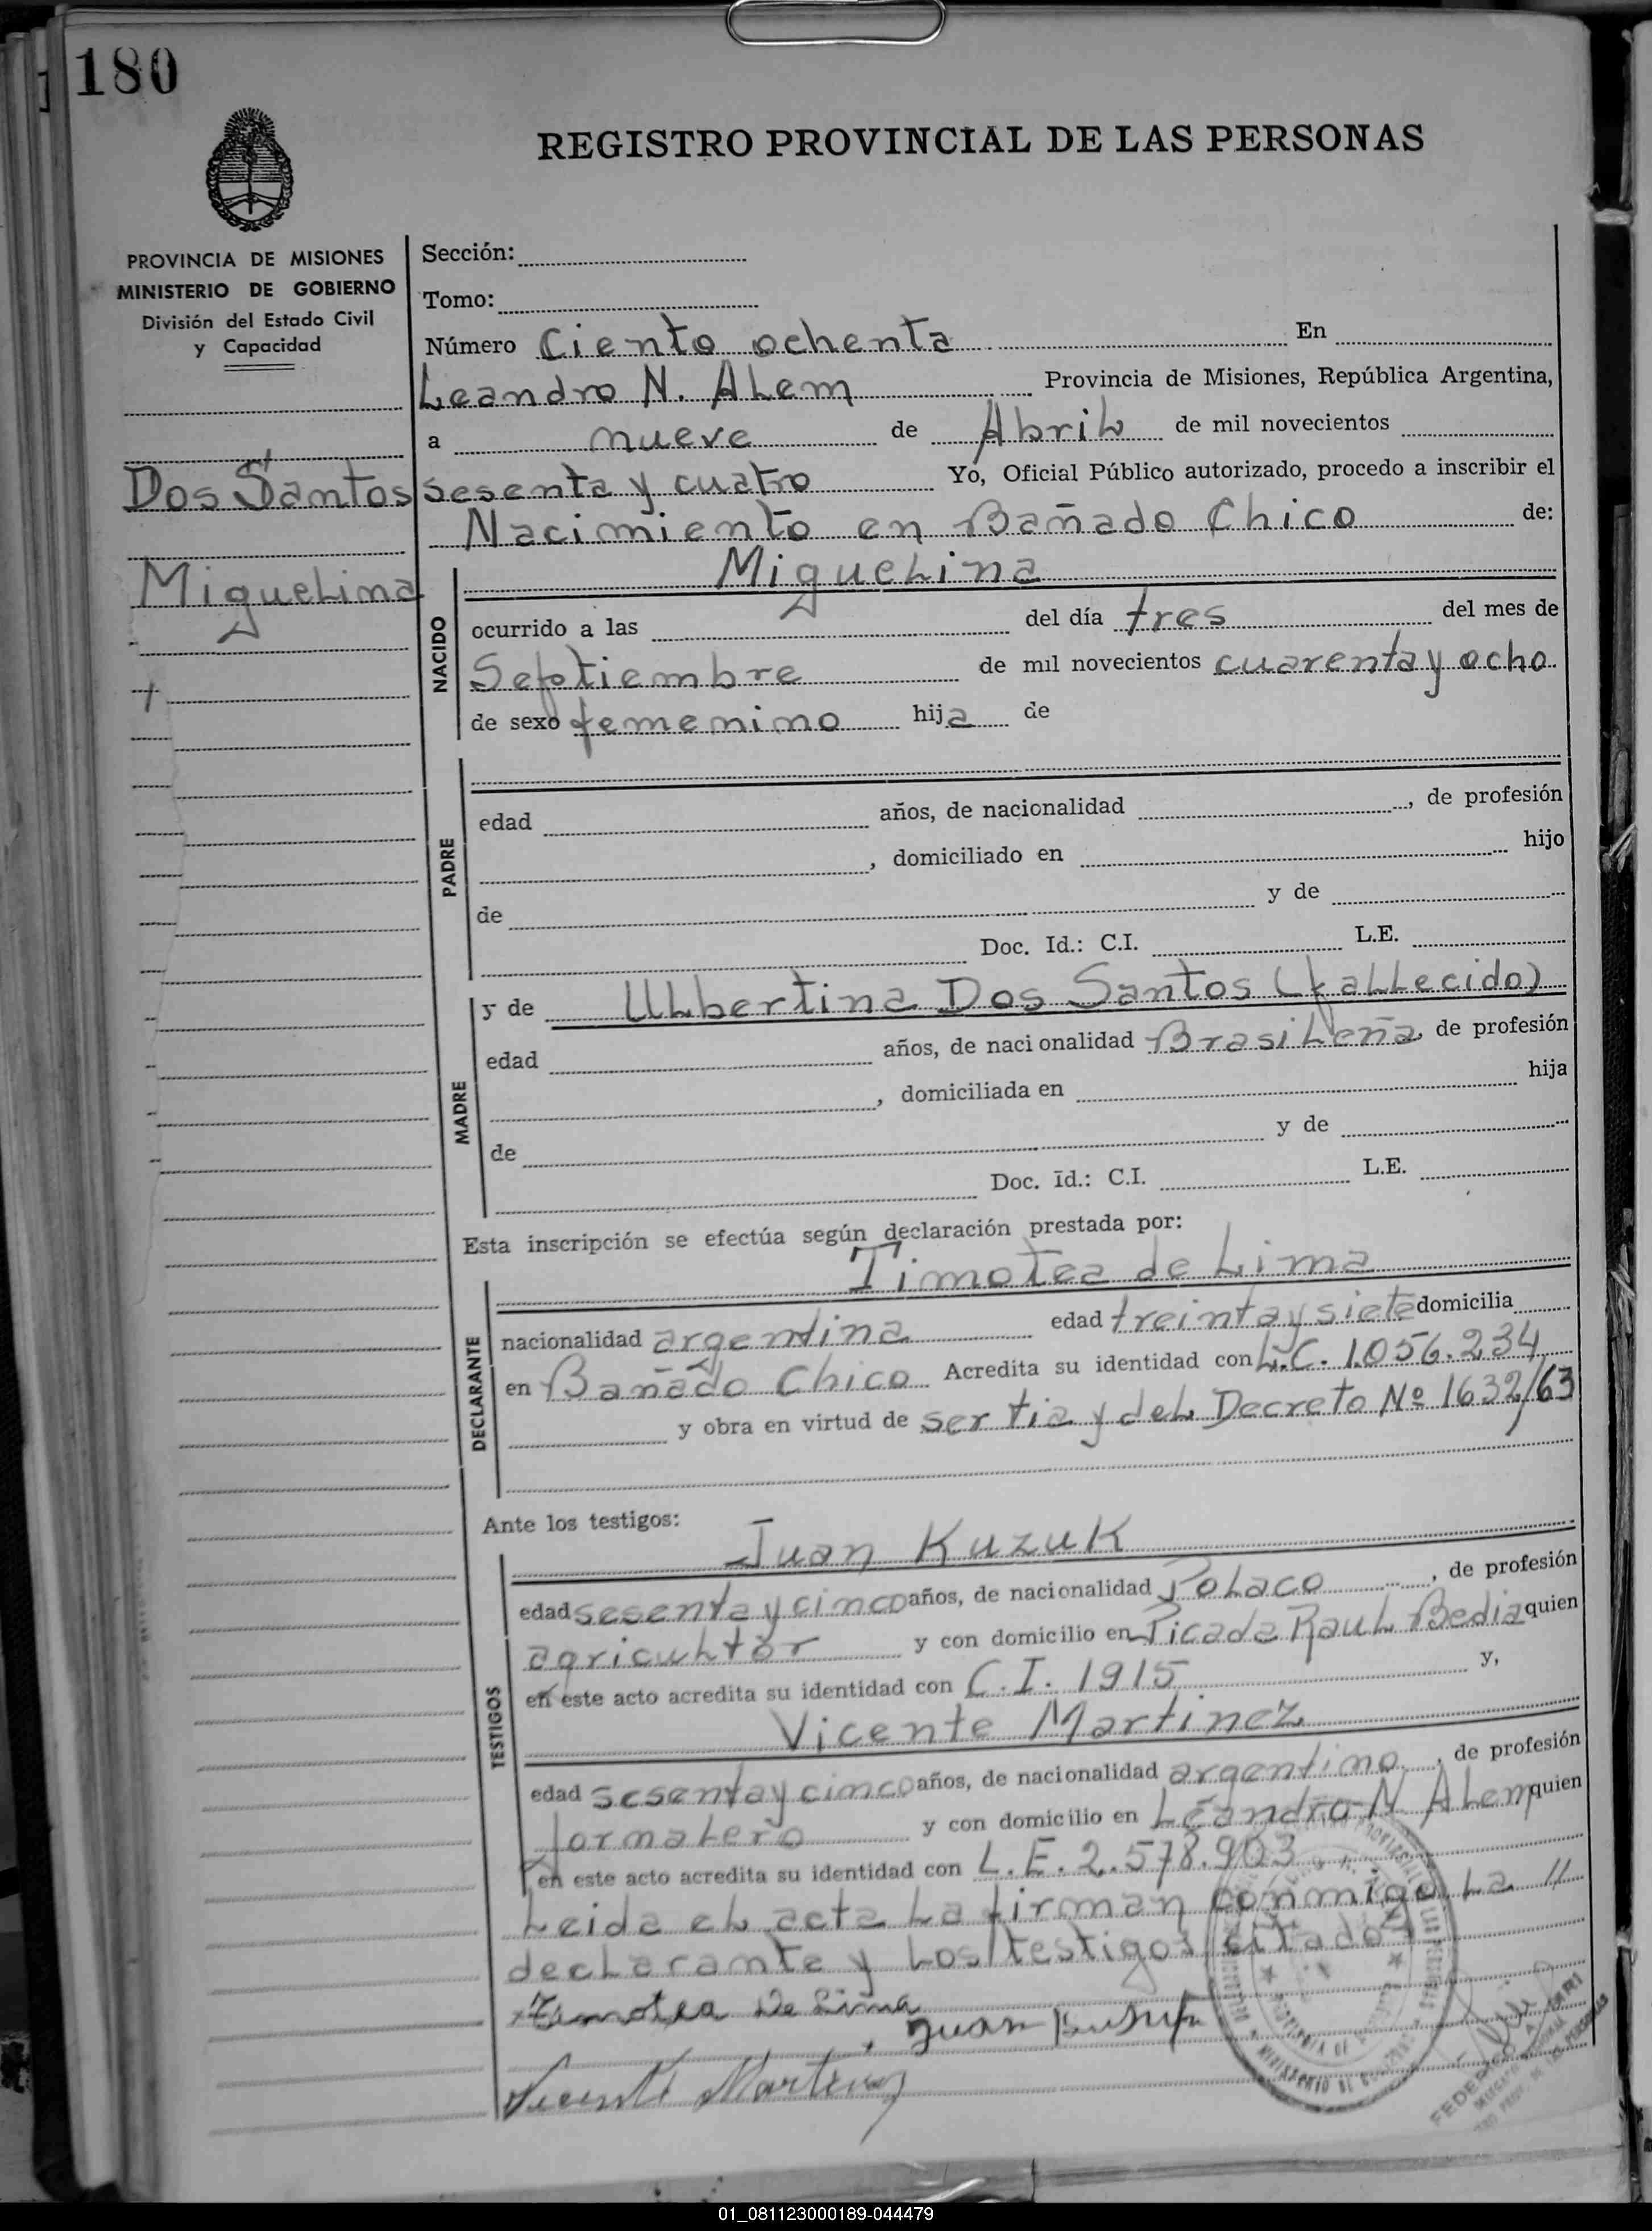 180
REGISTRO PROVINCIAL DE LAS PERSONAS
PROVINCIA DE MISIONES
MINISTERIO DE GOBIERNO
División del Estado Civil
y Capacidad
Dos Santos
Miguelina
Sección:
Tomo:
Número Ciento ochenta En
Leandro N. Alem Provincia de Misiones, República Argentina,
a nueve de Abril de mil novecientos
sesenta y cuatro Yo, Oficial Público autorizado, procedo a inscribir el
Nacimiento en Bañado Chico de:
NACIDO
Miguelina
ocurrido a las del día tres del mes de
Septiembre de mil novecientos cuarenta y ocho
de sexo femenino hija de
PADRE
edad años, de nacionalidad , de profesión
, domiciliado en hijo
de y de
Doc. Id.: C.I. L.E.
MADRE
y de Ulbertina Dos Santos (fallecido)
edad años, de nacionalidad Brasileña, de profesión
, domiciliada en hija
de y de
Doc. Id.: C.I. L.E.
Esta inscripción se efectúa según declaración prestada por:
DECLARANTE
Timotea de Lima
nacionalidad argentina edad treinta y siete domicilia
en Bañado Chico Acredita su identidad con L.C. 1.056.234
y obra en virtud de ser tia y del Decreto Nº 1632/63
Ante los testigos:
TESTIGOS
Juan Kuzuk
edad sesenta y cinco años, de nacionalidad Polaco , de profesión
agricultor y con domicilio en Picada Raul Bedia quien
en este acto acredita su identidad con C.I. 1915 y,
Vicente Martinez
edad sesenta y cinco años, de nacionalidad argentino , de profesión
Jornalero y con domicilio en Leandro N Alem quien
en este acto acredita su identidad con L.E. 2.578.903
Leida el acta la firman conmigo la //
declarante y los testigos citados
Timotea De Lima
Juan
Vicente Martinez
01_081123000189-044479